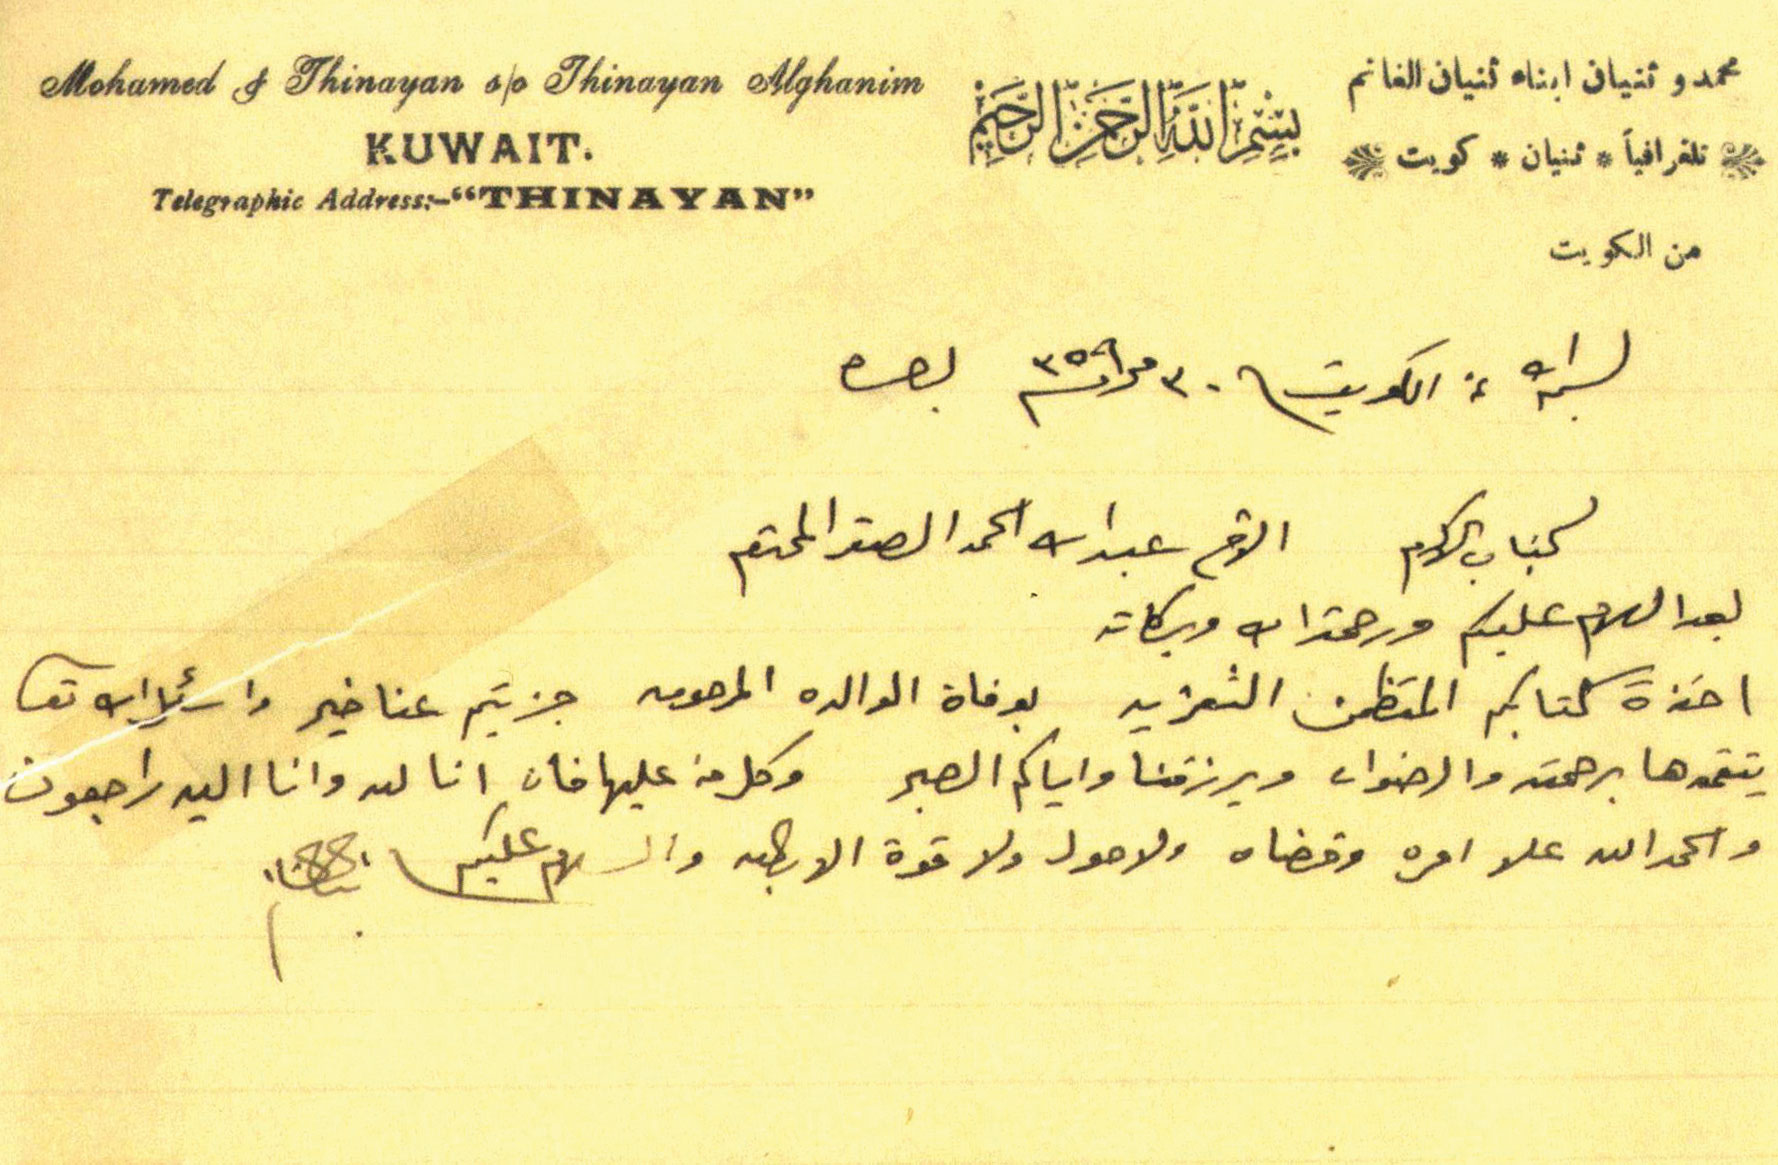 Mohamed & Thinayan s/o Thinayan Alghanim
KUWAIT.
Telegraphic Address:-“THINAYAN”
بِسْمِ اللَّهِ الرَّحْمَنِ الرَّحِيمِ
محمد و ثنيان ابناء ثنيان الغانم
تلغرافياً * ثنيان * كويت
من الكويت
بسم الله الكويت ٣٠ محرم ٣٥٩ بصره
لجناب المكرم الاخ عبدالله الحمد الصقر المحترم
بعد السلام عليكم ورحمة الله وبركاته
اخذة كتابكم المتظمن التعزيه بوفاة الوالده المرحومه جزيتم عنا خير واسئل الله تعا
يتغمدها برحمته والرضوان ويرزقنا واياكم الصبر وكل من عليها فان انا لله وانا اليه راجعون
والحمد لله علا امره وقضاه ولا حول ولا قوة الا بالله والسلام عليكم